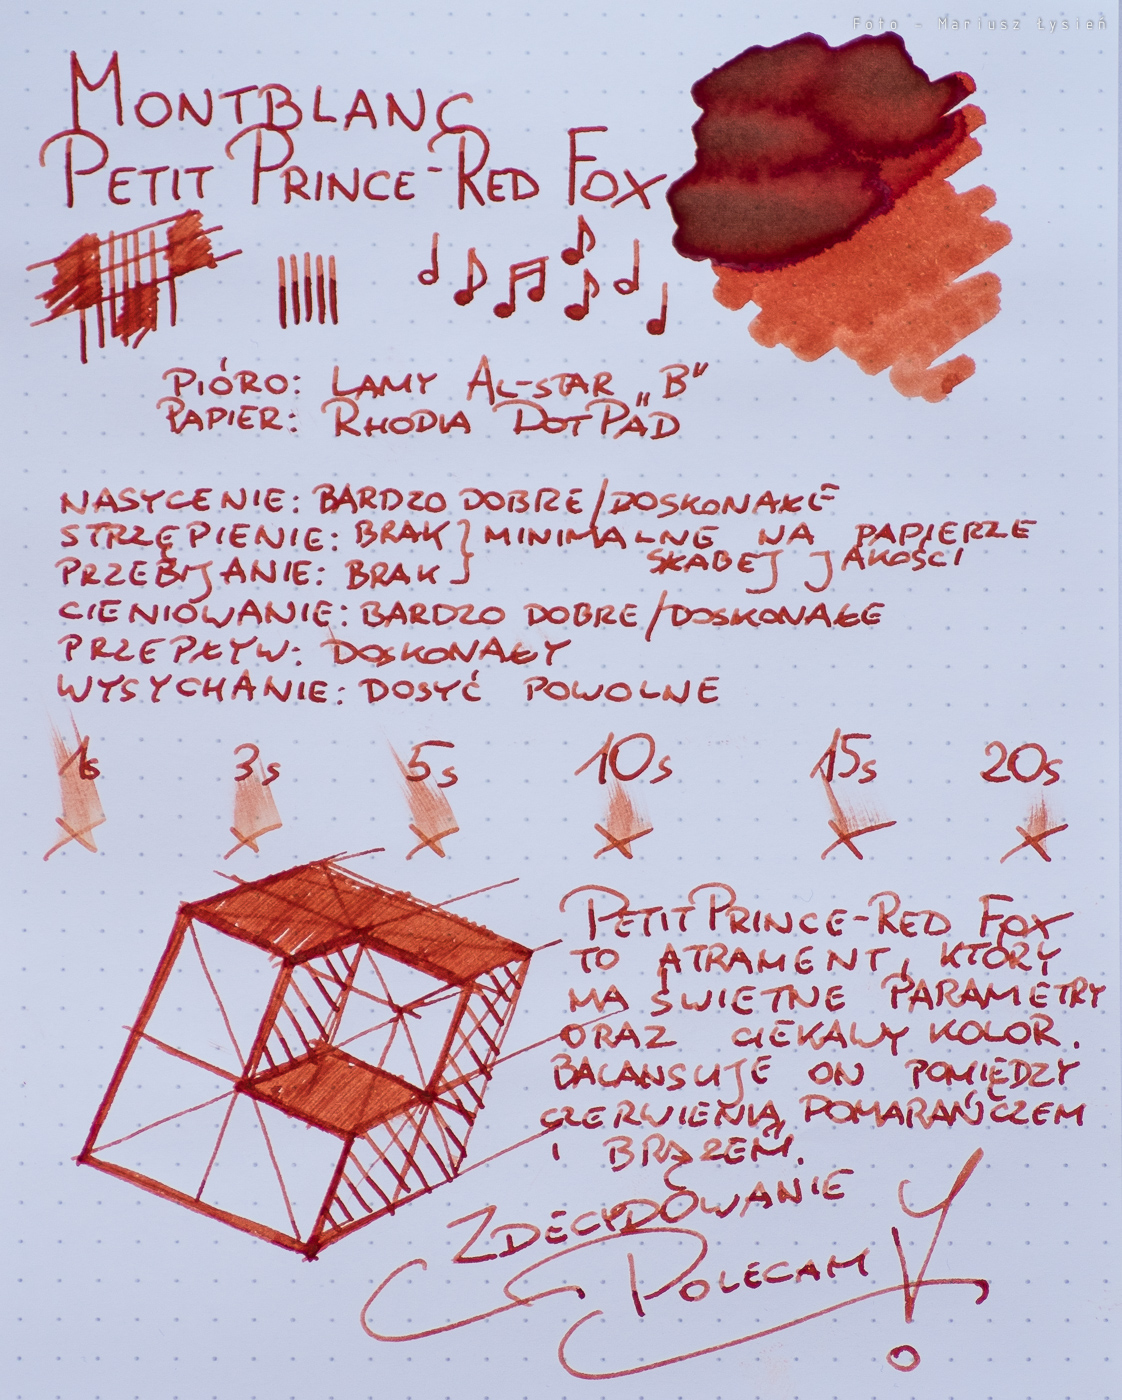 Foto - Mariusz Łysień
MONTBLANC
PETIT PRINCE-RED FOX
PIÓRO: LAMY AL-STAR „B”
PAPIER: RHODIA DOTPAD
NASYCENIE: BARDZO DOBRE/DOSKONAŁE
STRZĘPIENIE: BRAK } MINIMALNE NA PAPIERZE
PRZEBIJANIE: BRAK SŁABEJ JAKOŚCI
CIENIOWANIE: BARDZO DOBRE/DOSKONAŁE
PRZEPŁYW: DOSKONAŁY
WYSYCHANIE: DOSYĆ POWOLNE
1s 3s 5s 10s 15s 20s
PETIT PRINCE-RED FOX
TO ATRAMENT, KTÓRY
MA ŚWIETNE PARAMETRY
ORAZ CIEKAWY KOLOR.
BALANSUJE ON POMIĘDZY
CZERWIENIĄ, POMARAŃCZEM
I BRĄZEM.
ZDECYDOWANIE
POLECAM!